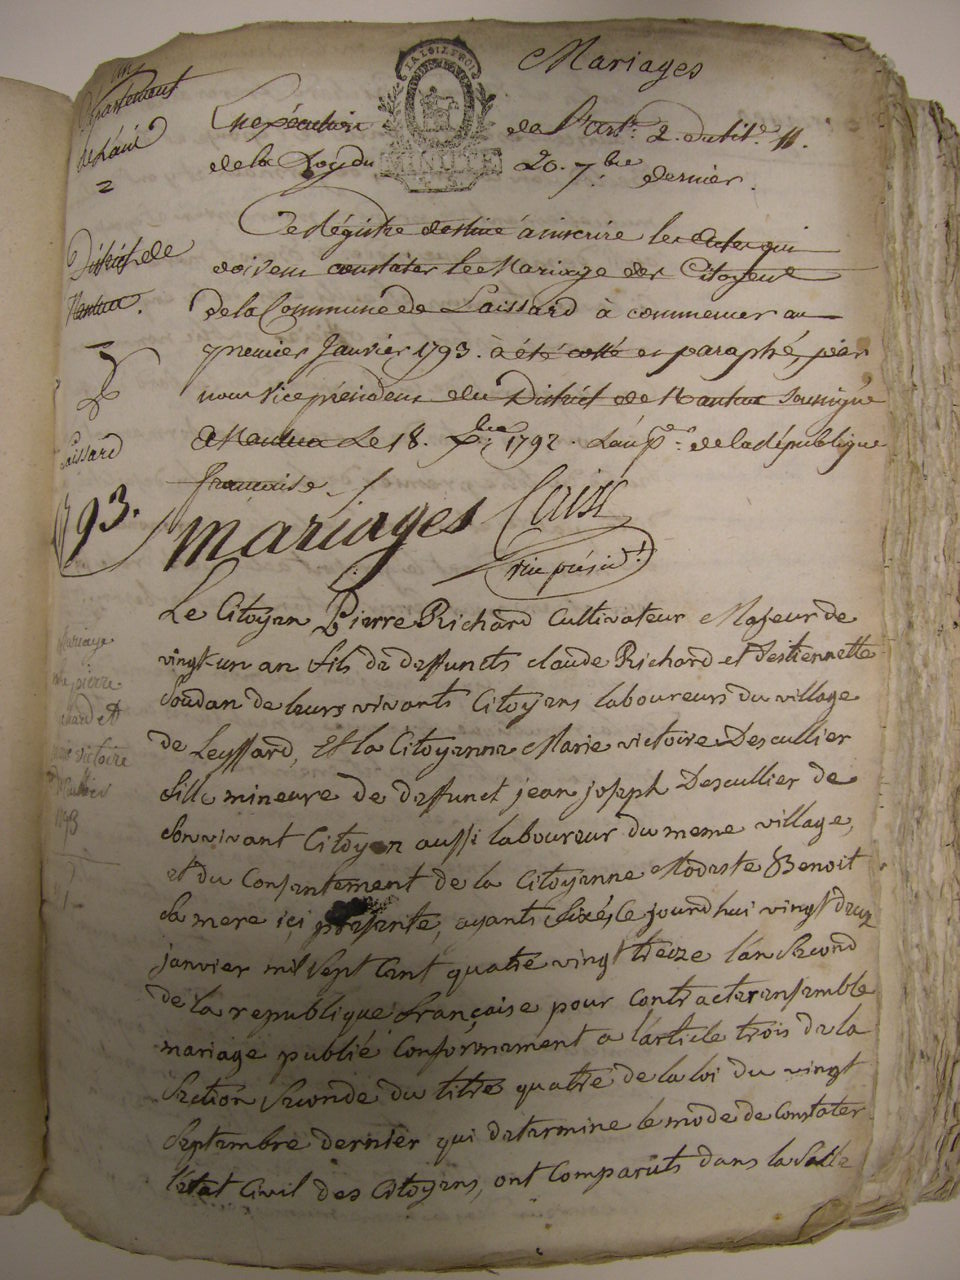 Mariages
Département
de L'ain
LA LOI LE ROI
En exécution de L'art. 2. du tit.e II.
de la Loy du 20. 7.bre dernier.
District de
Nantua.
Ce Régistre destiné à inscrire les actes qui
doivent constater le Mariage des Citoyens
de la Commune de Laissard à commencer au
premier Janvier 1793. à été cotté et paraphé, par
nous Vice président du District de Nantua Soussigné
A Nantua Le 18. Xbre 1792. L'an p.er de la République
française.
Laissard
1793.
mariages
vice présid.t
Le Citoyen Pierre Richard Cultivateur Majeur de
vingt un an fils de deffuncts claude Richard et d'estiennette
Soudan de leurs vivants Citoyens laboureurs du village
de Leyssard, Et la Citoyenne Marie victoire Descullier
fille mineure de deffunct jean joseph Descullier de
Son vivant Citoyen aussi laboureur du meme village,
et du Consentement de la Citoyenne Modeste Benoit
Sa mere ici presente, ayants fixés le jourd'hui vingt deux
janvier mil Sept Cent quatre vingt treize l'an Second
de la republique française pour Contracter ensemble
mariage publié Conformement a l'article trois de la
Section Seconde du titre quatre de la loi du vingt
Septembre dernier qui determine le mode de Constater
l'etat Civil des Citoyens, ont Comparuts dans la Salle
Mariage
pierre
victoire
1793